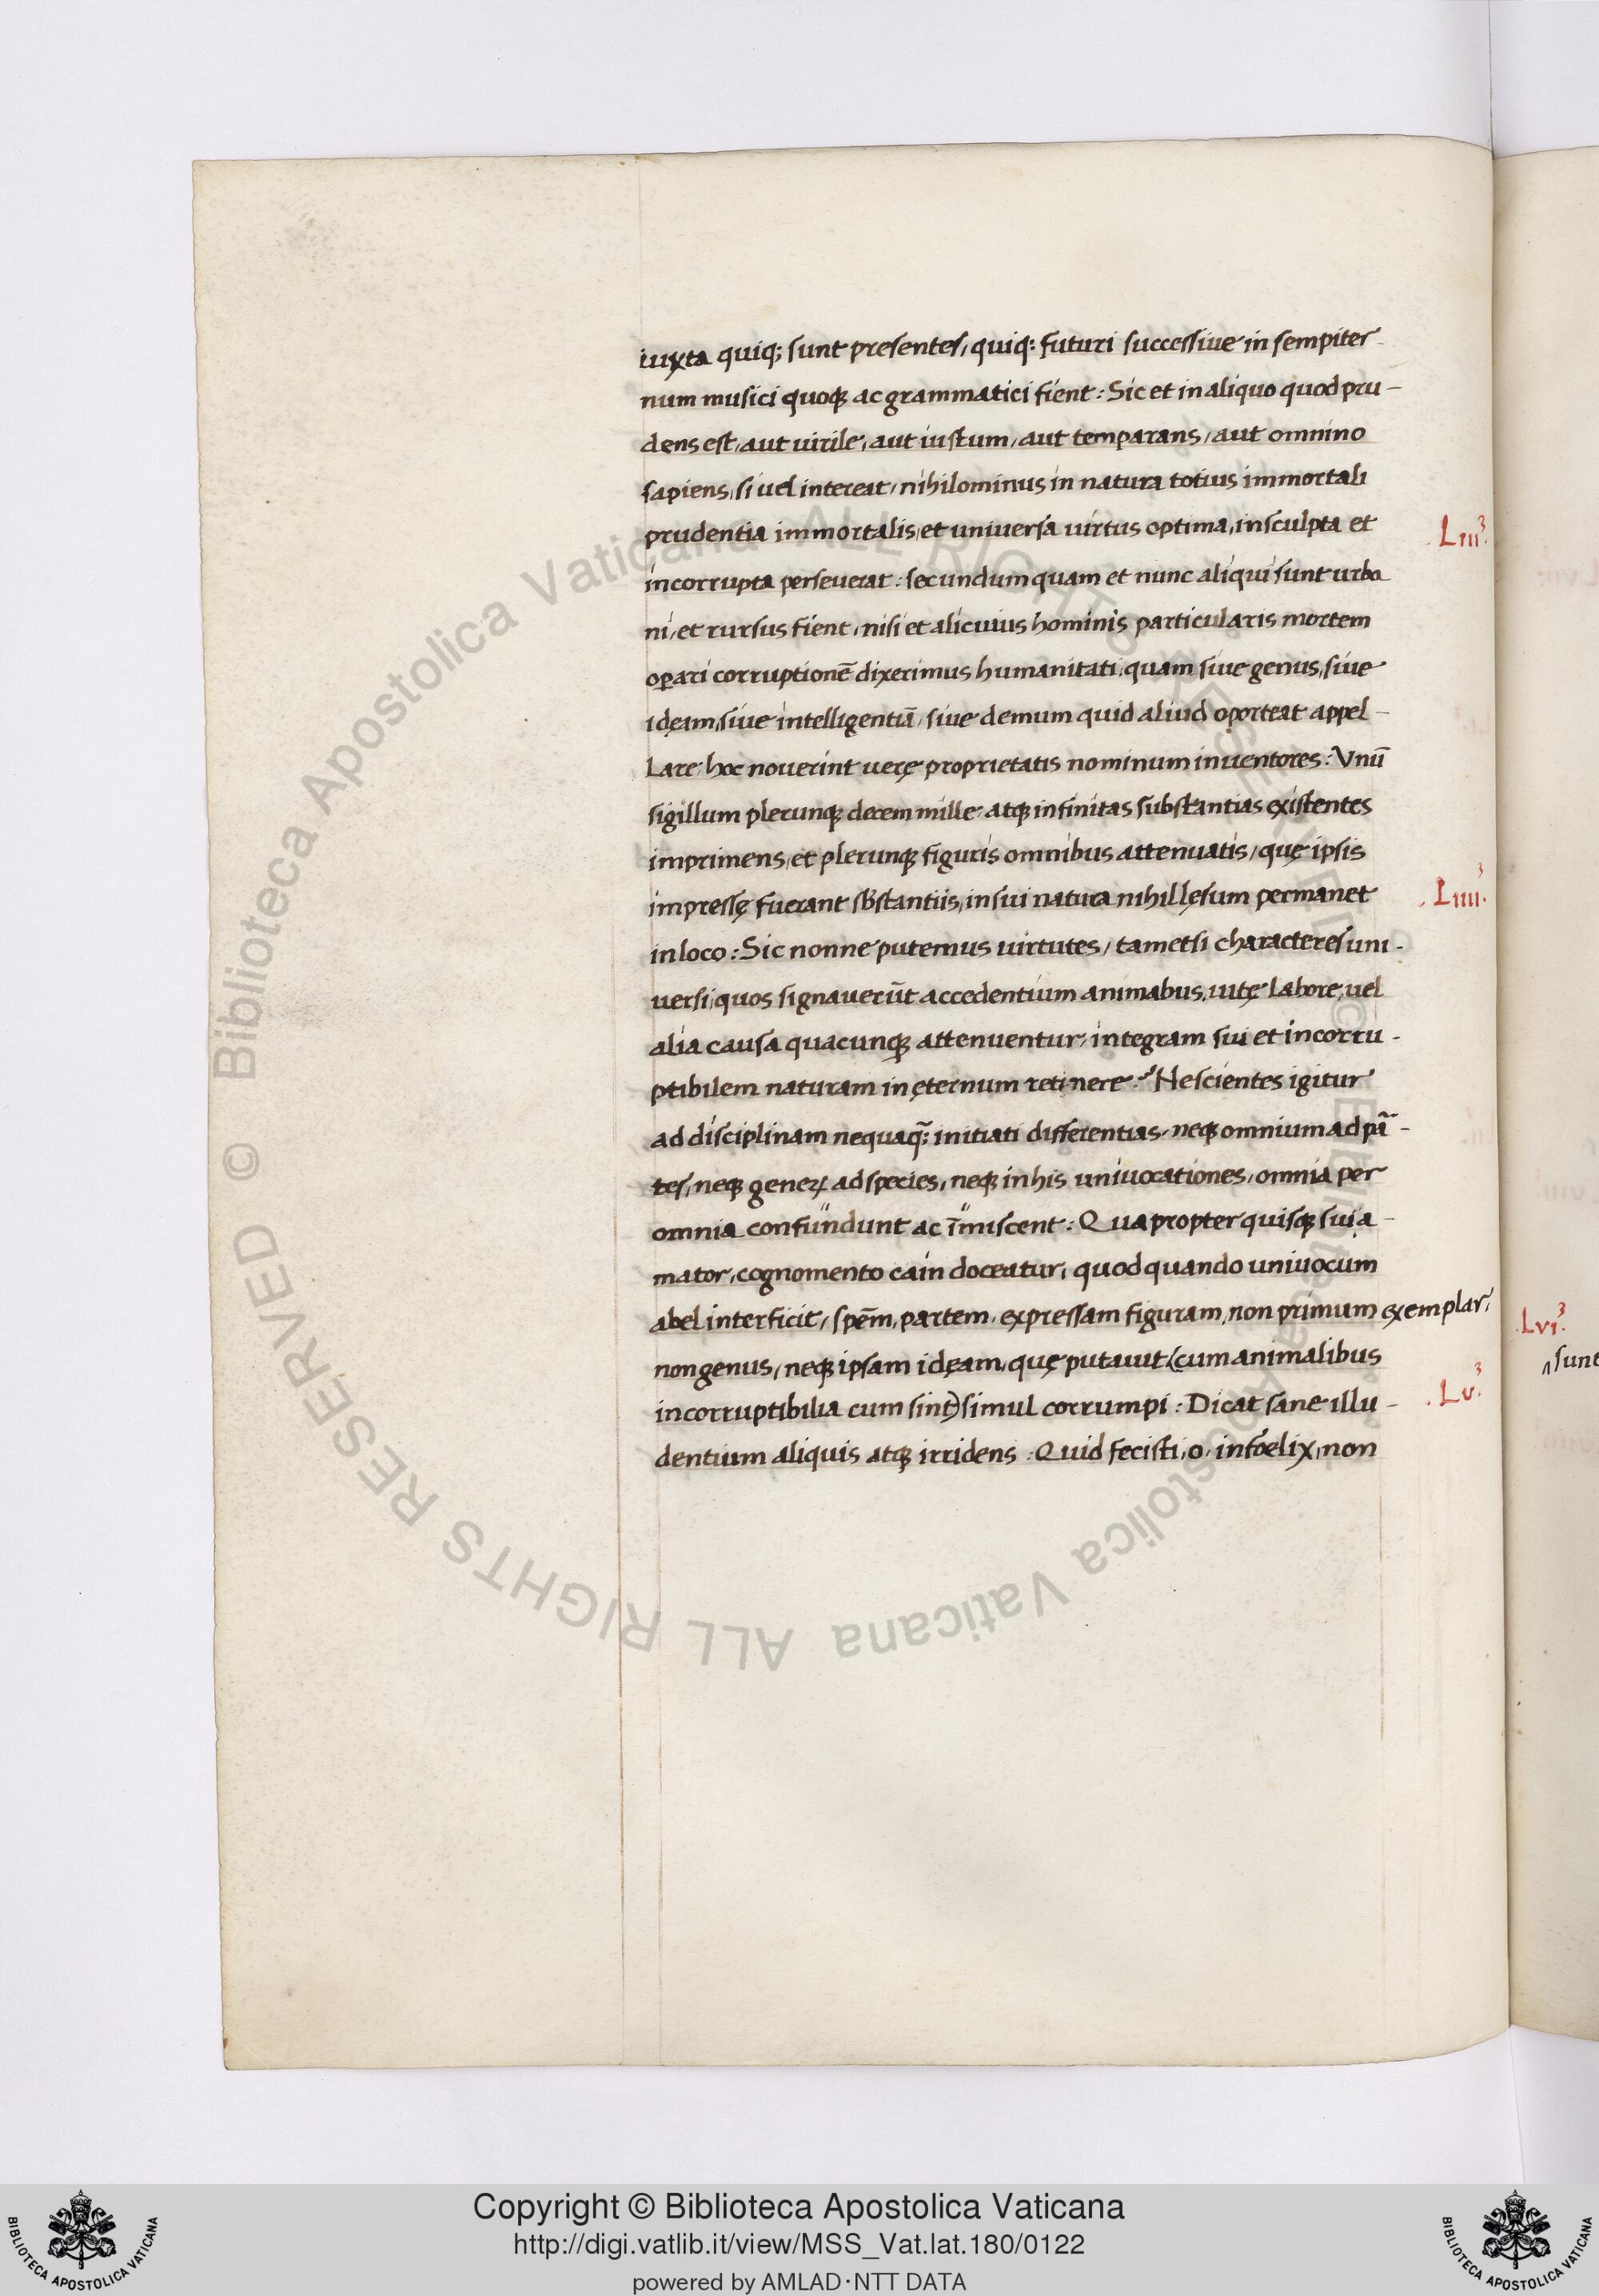 iuxta quiq; sunt presentes, quiq: futuri successiue in sempiter-
num musici quoq; ac grammatici fient: Sic et in aliquo quod pru-
dens est, aut uirile, aut iustum, aut temparans, aut omnino
sapiens, si uel intereat, nihilominus in natura totius immortali
prudentia immortalis, et uniuersa uirtus optima, insculpta et
.Liii.³
incorrupta perseuerat: secundum quam et nunc aliqui sunt urba
ni, et rursus fient, nisi et alicuius hominis particularis mortem
oꝑari corruptionē dixerimus humanitati, quam siue genus, siue
idęam, siue intelligentiā, siue demum quid aliud oporteat appel-
lare, hoc nouerint uerę proprietatis nominum inuentores: Vnū
sigillum plerunq; decem mille, atq; infinitas substantias existentes
imprimens, et plerunq; figuris omnibus attenuatis, quę ipsis
impressę fuerant sb̄stantiis, in sui natura nihil lęsum permanet
.Liiii.³
in loco: Sic nonne putemus uirtutes, tametsi characteres uni-
uersi, quos signauerūt accedentium animabus, uitę labore, uel
alia causa quacunq; attenuentur, integram sui et incorru-
ptibilem naturam in ęternum retinere? Nescientes igitur
ad disciplinam nequaq̄; initiati differentias, neq; omnium ad pā-
tes, neq; geneꝝ ad species, neq; in his uniuocationes, omnia per
omnia confundunt ac īmiscent: Quapropter quisq; sui a-
mator, cognomento cain doceatur, quod quando uniuocum
abel interficit, spēm, partem, expressam figuram, non primum exemplar,
.Lvi.³
non genus, neq; ipsam idęam, quę putauit (cum animalibus
sunt
incorruptibilia cum sint) simul corrumpi: Dicat sane illu-
.Lv.³
dentium aliquis atq; irridens: Quid fecisti, o, infoelix, non
© Biblioteca Apostolica Vaticana ALL RIGHTS RESERVED © Biblioteca Apostolica Vaticana ALL RIGHTS RESERVED
BIBLIOTECA APOSTOLICA VATICANA
Copyright © Biblioteca Apostolica Vaticana
http://digi.vatlib.it/view/MSS_Vat.lat.180/0122
powered by AMLAD·NTT DATA
BIBLIOTECA APOSTOLICA VATICANA